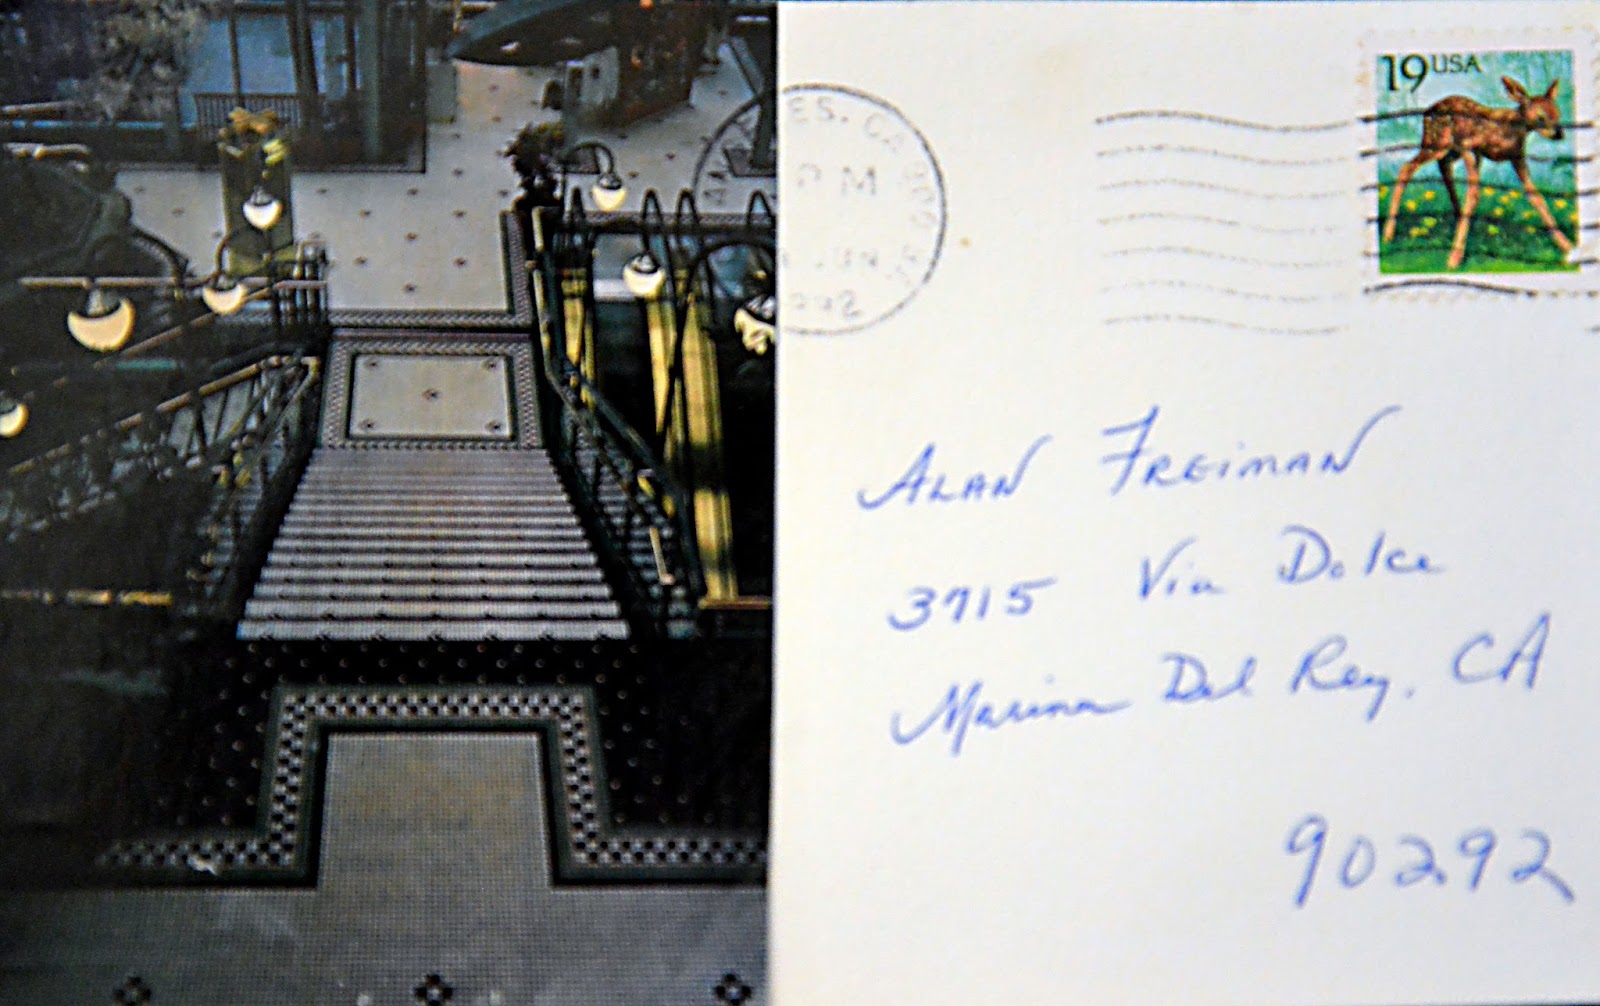 19 USA
ES. CA 900
PM
JUN
Alan Freiman
3715 Via Dolce
Marina Del Rey, CA
90292